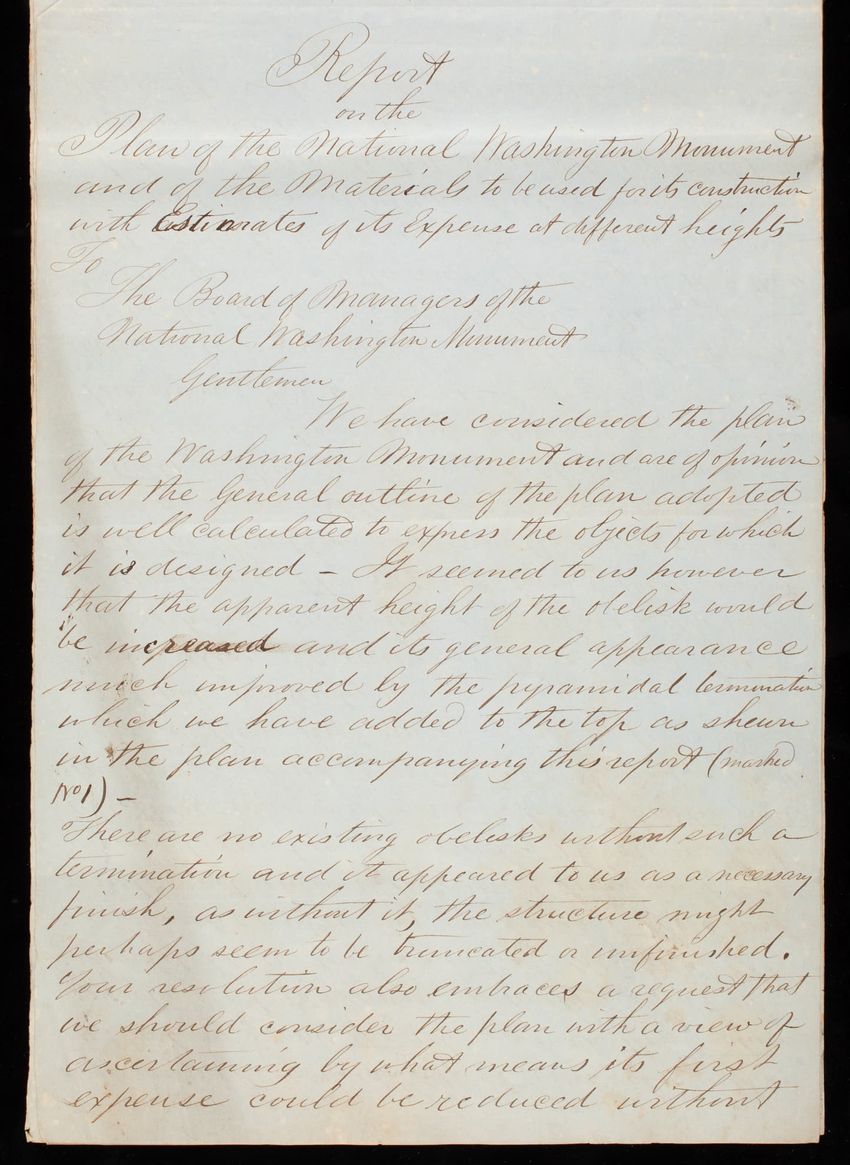 Report
on the
Plan of the National Washington Monument
and of the Materials to be used for its construction
with Estimates of its Expense at different heights
To
The Board of Managers of the
National Washington Monument
Gentlemen
We have considered the plan
of the Washington Monument and are of opinion
that the General outline of the plan adopted
is well calculated to express the objects for which
it is designed – It seemed to us however
that the apparent height of the obelisk would
be increased and its general appearance
much improved by the pyramidal termination
which we have added to the top as shewn
in the plan accompanying this report (marked
No 1) –
There are no existing obelisks without such a
termination and it appeared to us as a necessary
finish, as without it, the structure might
perhaps seem to be truncated or unfinished.
Your resolution also embraces a request that
we should consider the plan with a view of
ascertaining by what means its first
expense could be reduced without